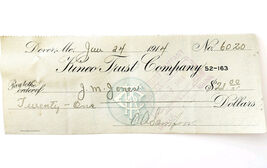 Dover, Me. Jun 24 1914 No. 6020
Kineo Trust Company 52-163
Pay to the order of J. M. Jones $21.00
Twenty-One Dollars